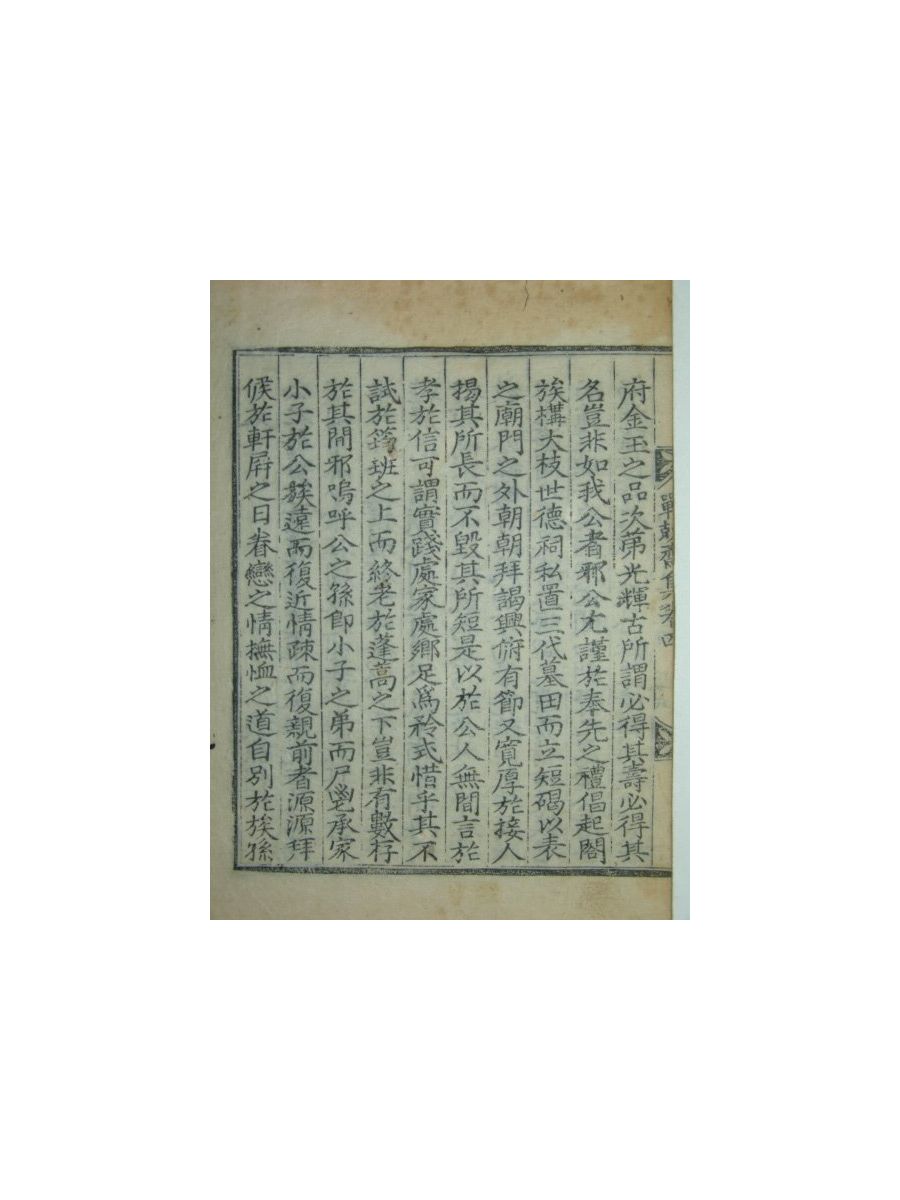 府金玉之品次第光輝古所謂必得其壽必得其
名豈非如我公者邪公尤謹於奉先之禮倡起閤
族構大枝世德祠私置三代墓田而立短碣以表
之廟門之外朝朝拜謁興俯有節又寬厚於接人
揭其所長而不毀其所短是以於公人無間言於
孝於信可謂實踐處家處鄉足爲矜式惜乎其不
試於筍班之上而終老於蓬蒿之下豈非有數存
於其間邪嗚呼公之孫卽小子之弟而尸鬯承家
小子於公族遠而復近情疎而復親前者源源拜
候於軒屛之日眷戀之情撫恤之道自別於族孫
齋集卷四